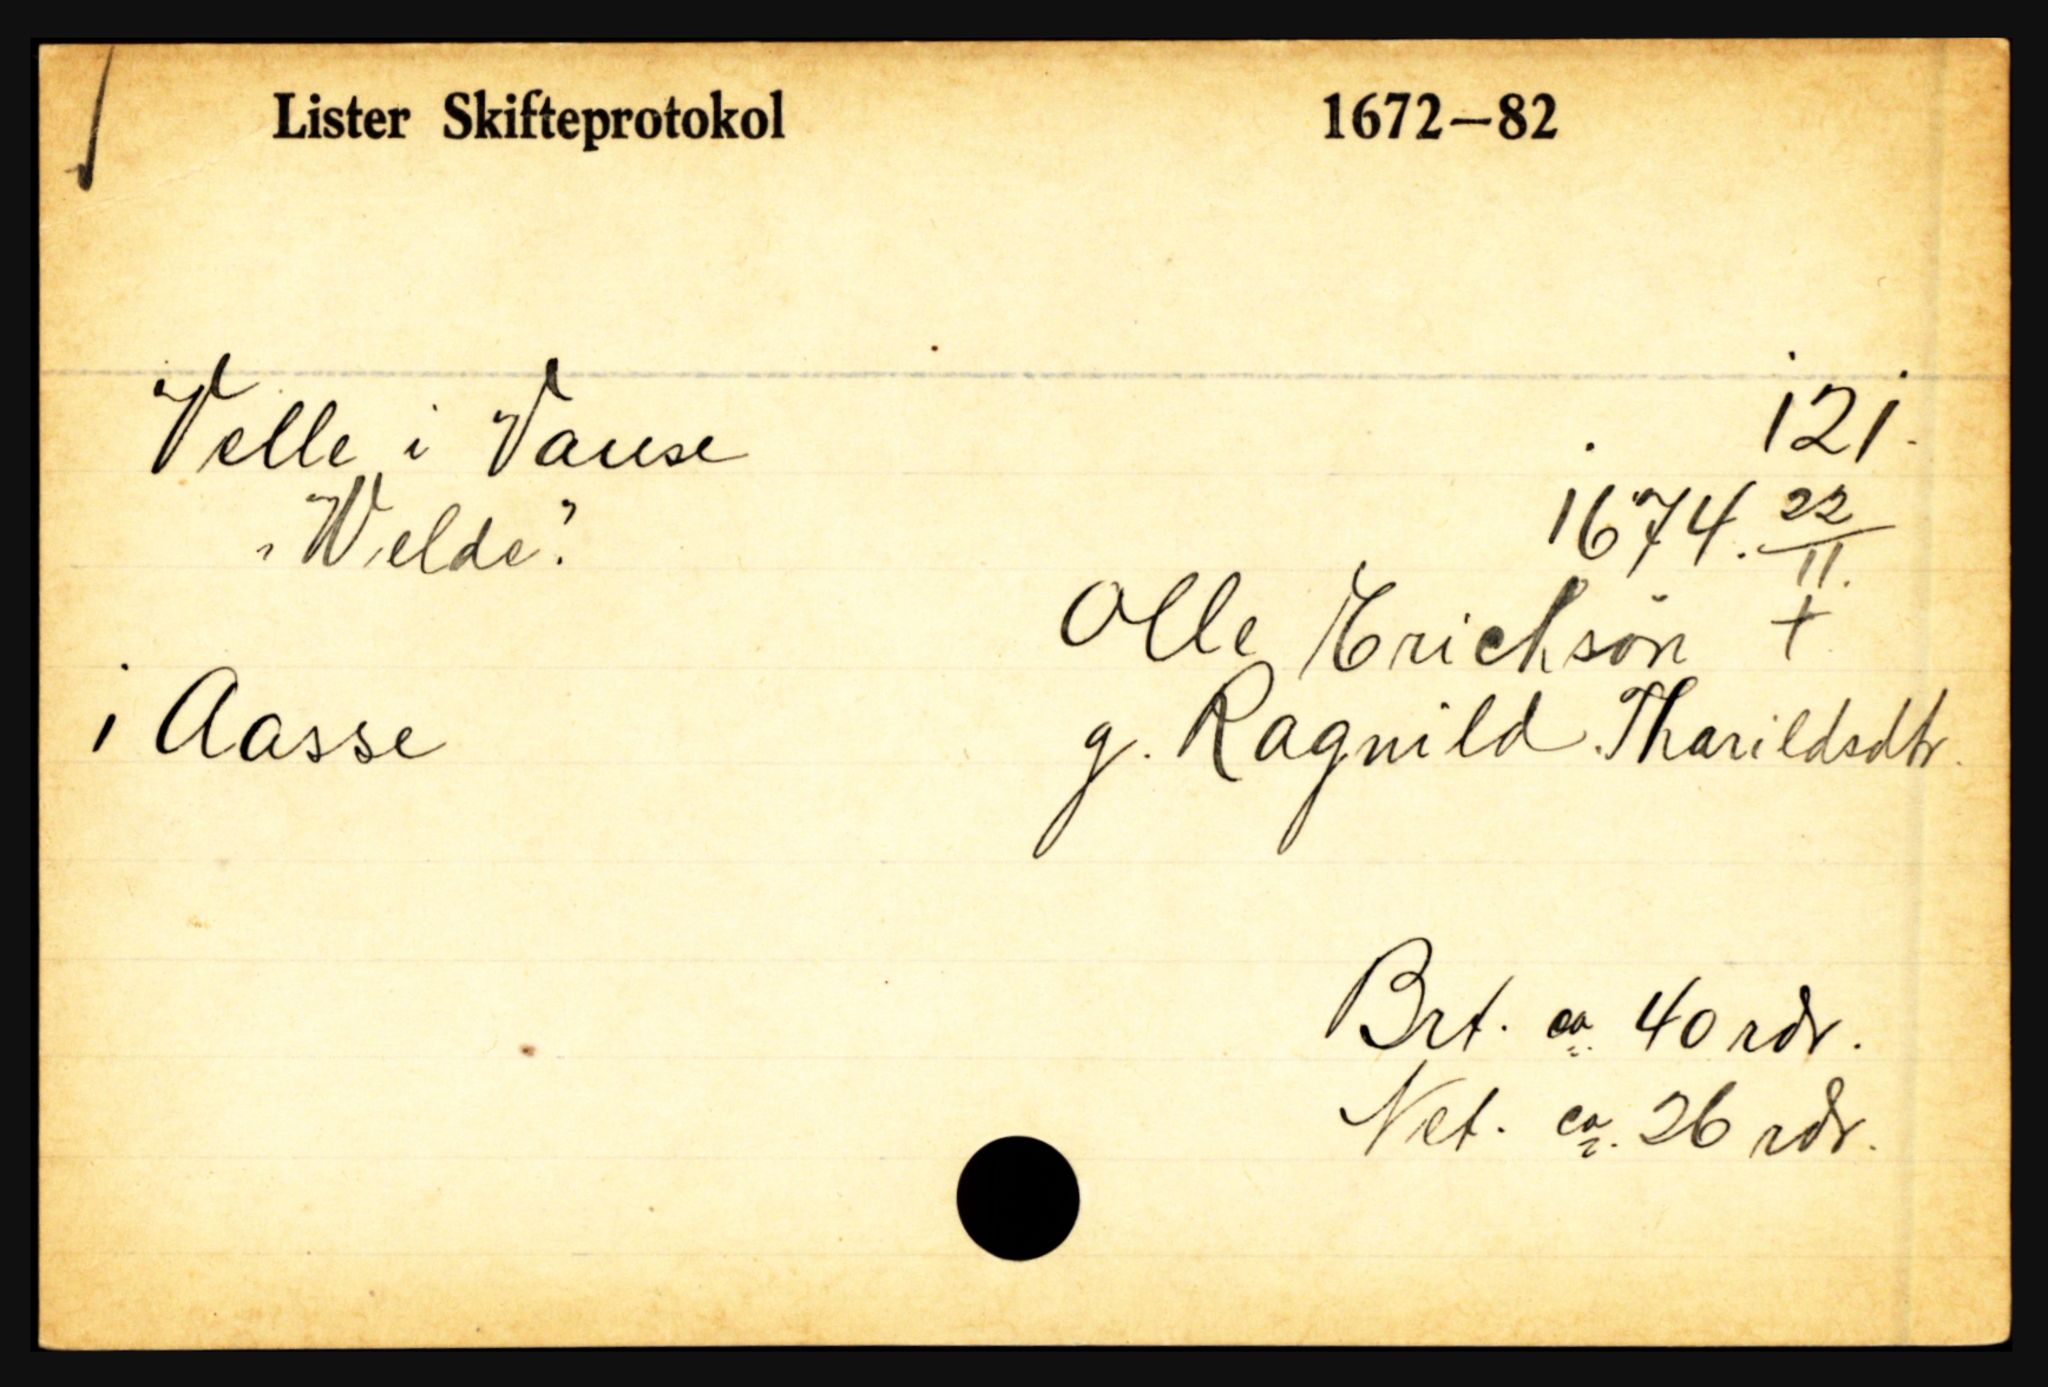 Lister Skifteprotokol 1672—82
Velle i Vanse 121.
"Welde". 1674. 22/11.
Olle Erichsön +
i Aasse g. Ragnild Tharildsdtr.
Brt. ca. 40 rdr.
Net. ca. 26 rdr.